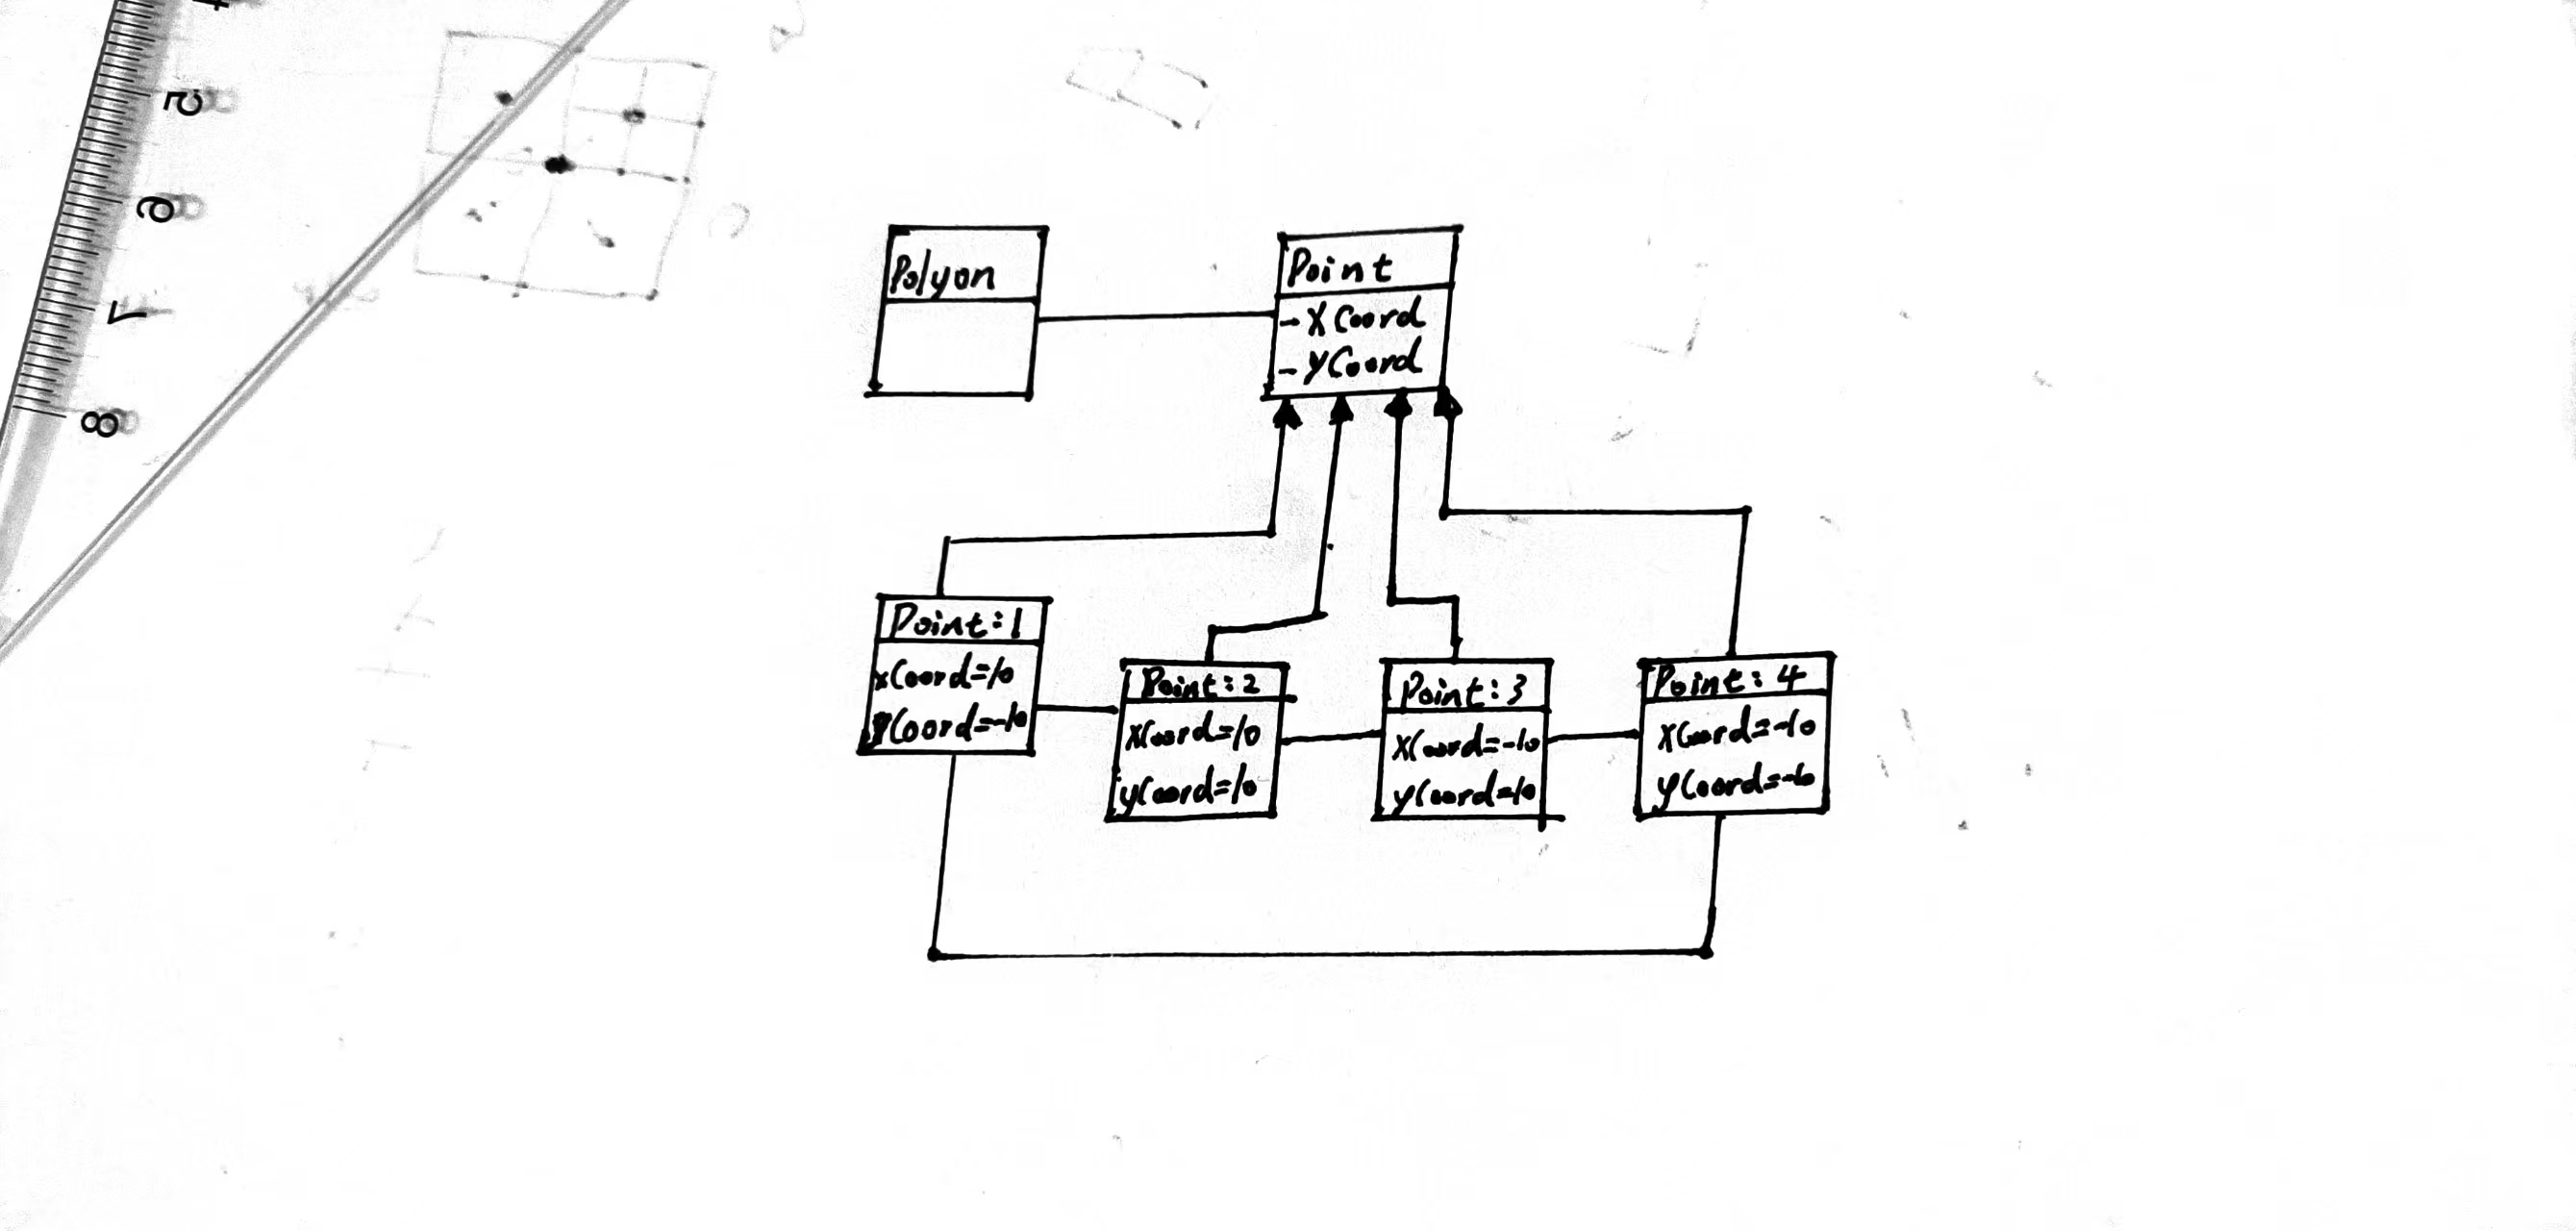 5
6
7
8
Polyon
Point
-XCoord
-YCoord
Point:1
xCoord=10
yCoord=-10
Point:2
XCoord=10
yCoord=10
Point:3
XCoord=-10
yCoord=10
Point:4
XCoord=-10
yCoord=-10